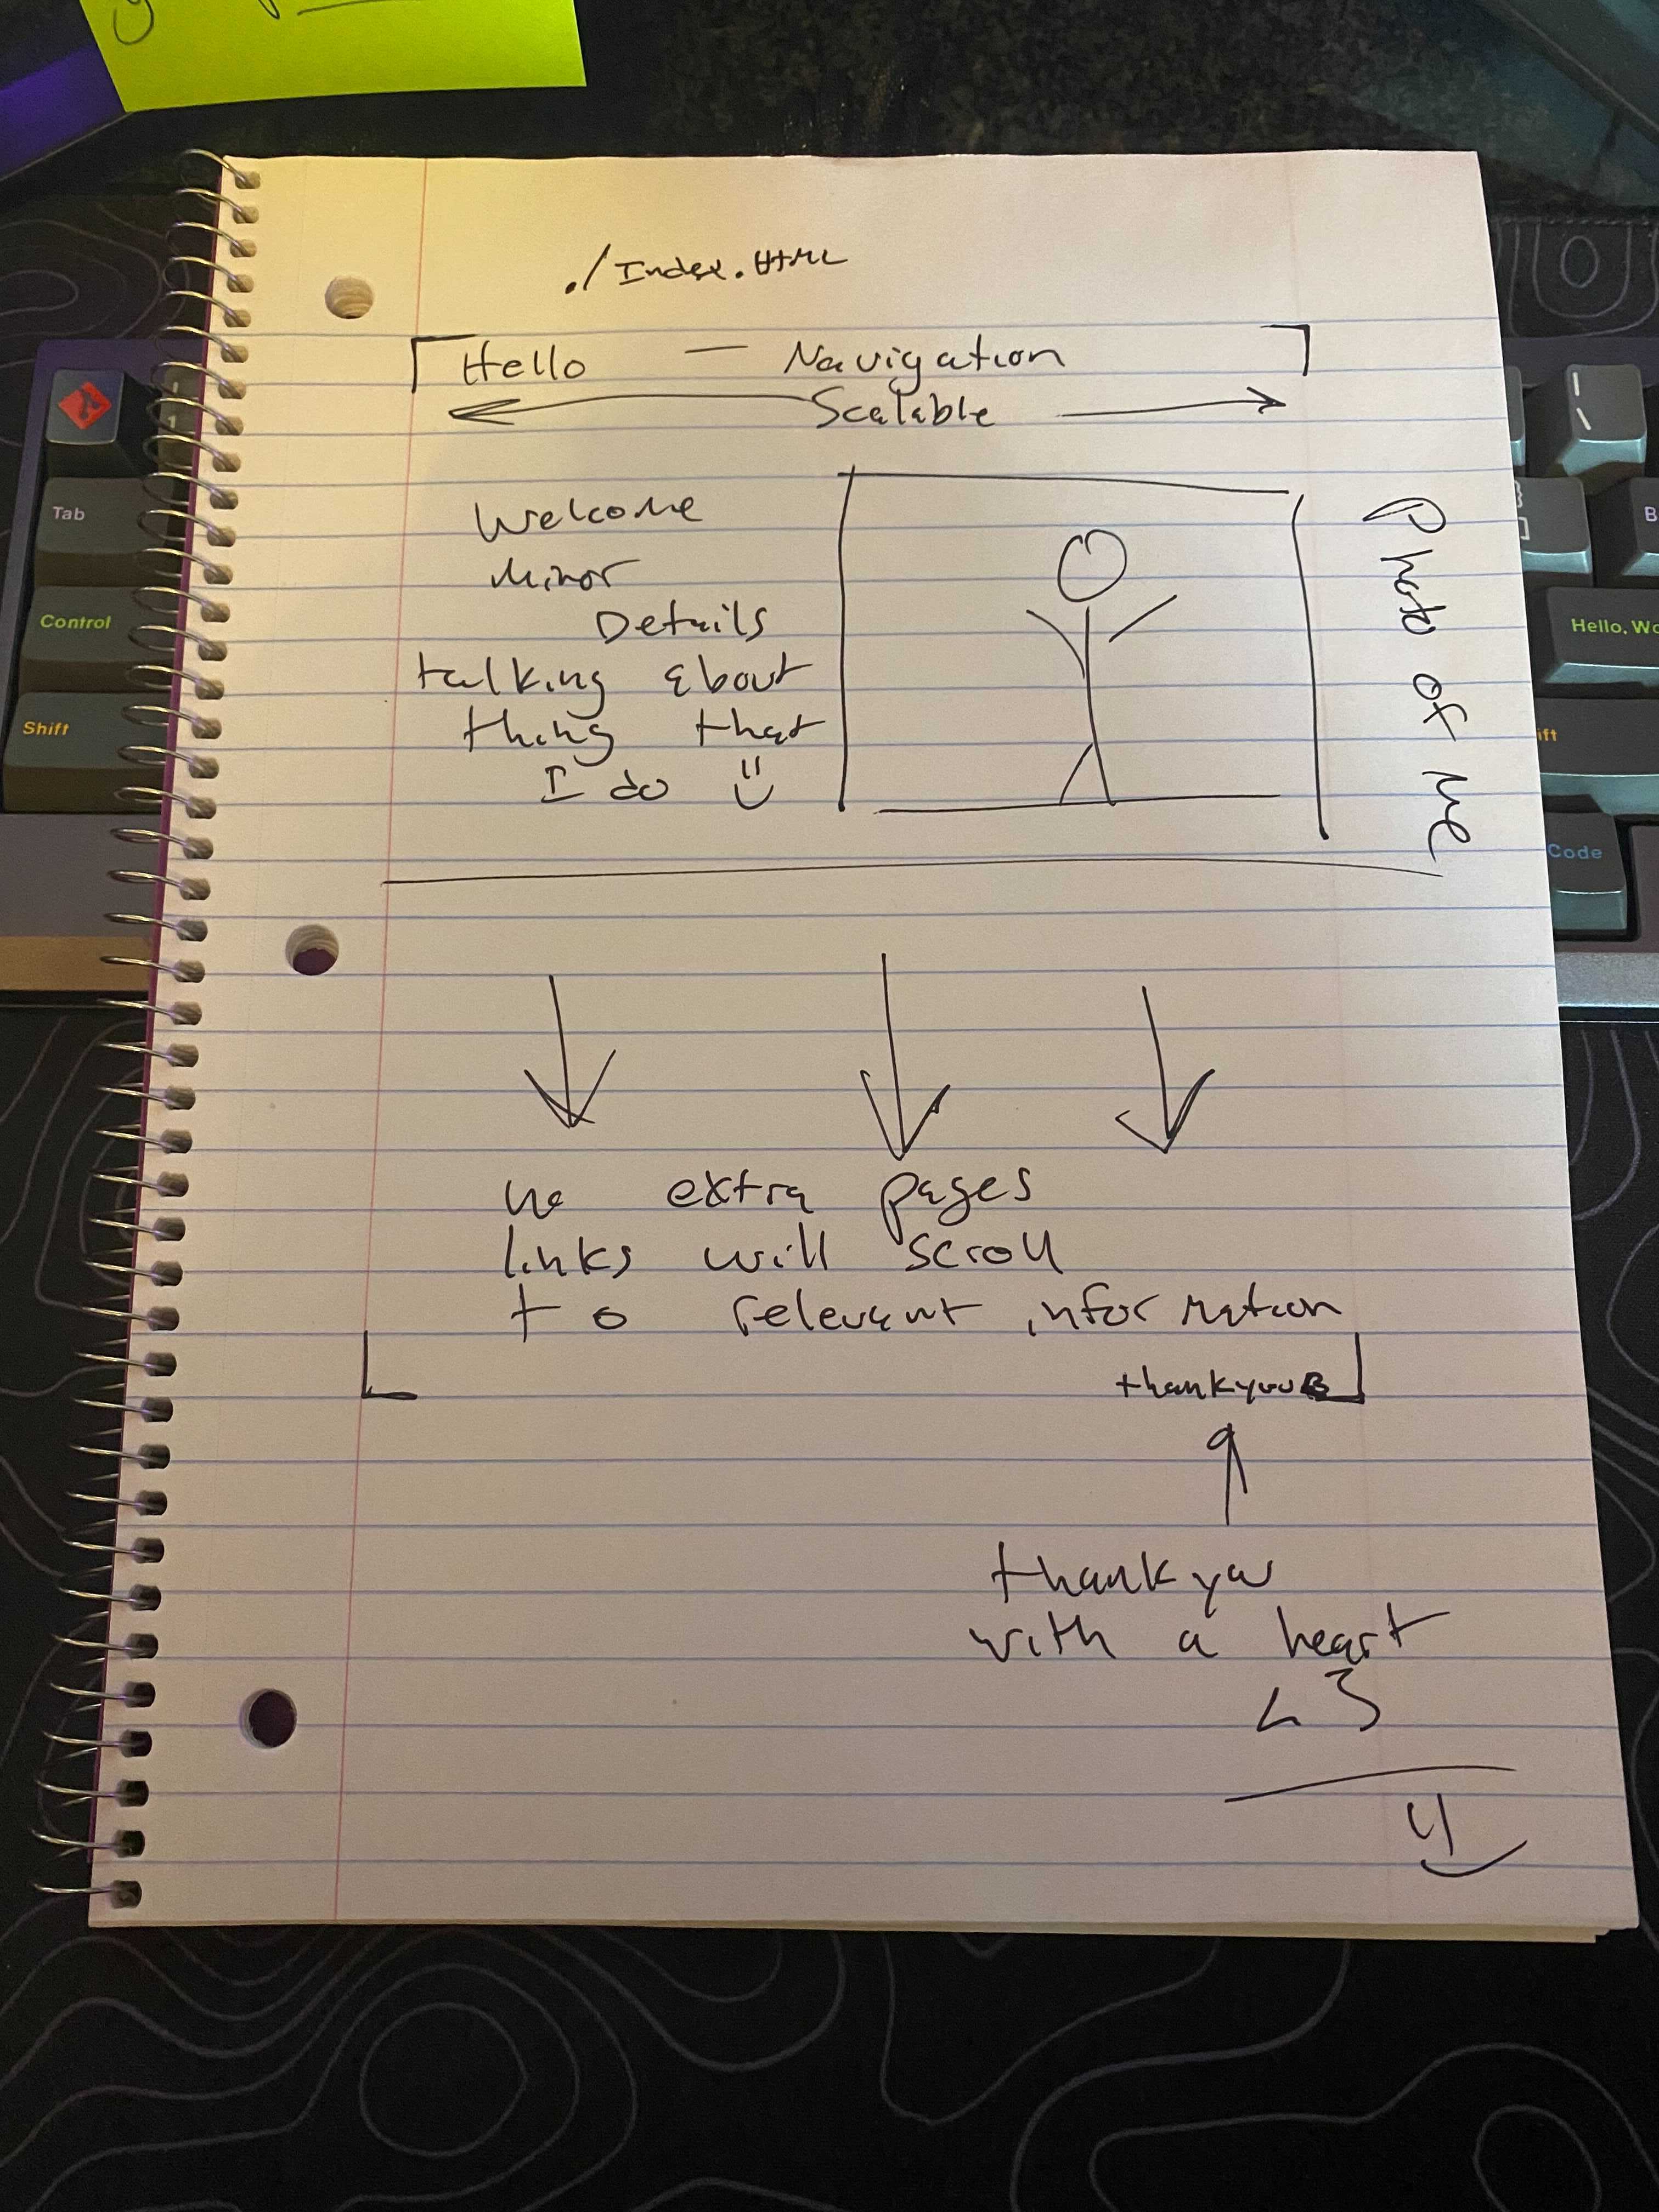 ./Index.HTML
Hello — Navigation
Scalable
Welcome
Minor
Details
talking about
thing that
I do
Photo of me
no extra pages
links will scroll
to relevant information
thankyou
thank you
with a heart
<3
Tab
Control
Shift
Hello, Wo
ift
Code
B